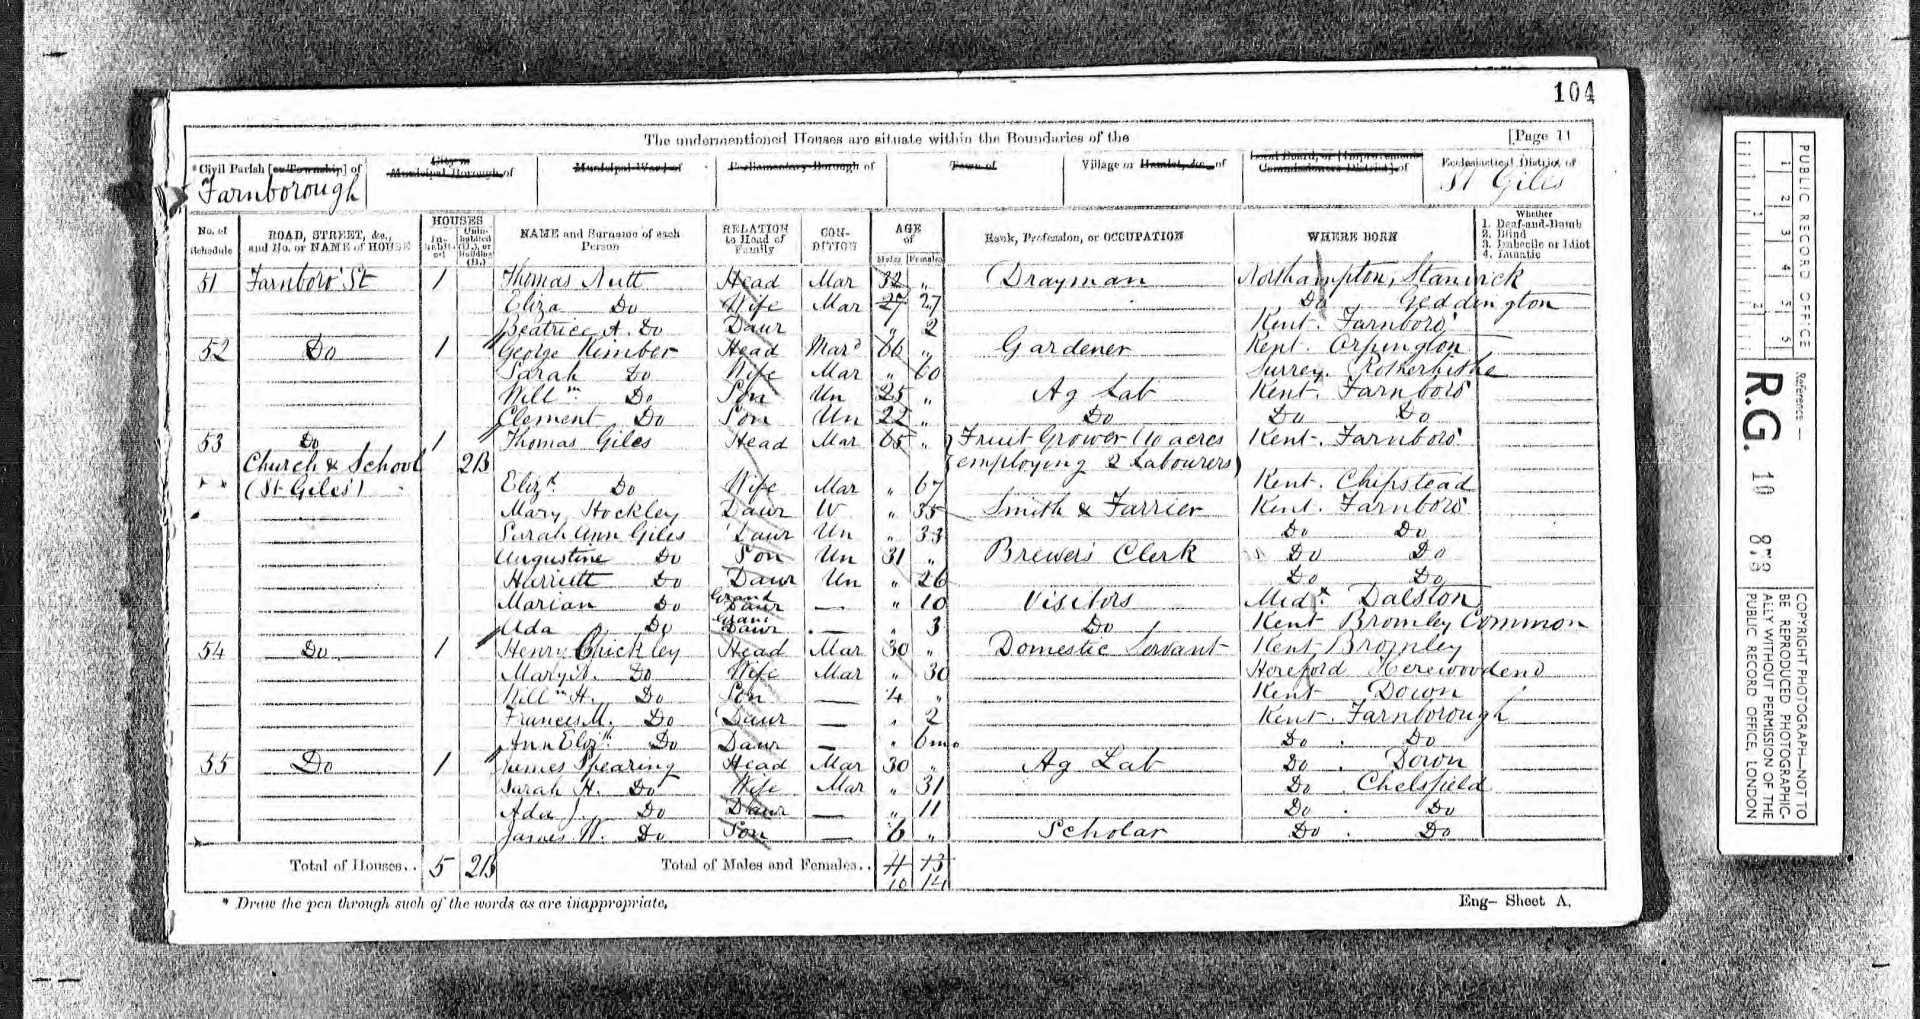 104
The undermentioned Houses are situate within the Boundaries of the [Page 11
*Civil Parish [or Township] of City or Municipal Borough of Municipal Ward of Parliamentary Borough of Town of Village or Hamlet, &c., of Local Board, or [Improvement Commissioners District] of Ecclesiastical District of
Farnborough St Giles
No. of Schedule ROAD, STREET, &c., and No. or NAME of HOUSE HOUSES Inhabited Uninhabited (U.), or Building (B.) NAME and Surname of each Person RELATION to Head of Family CONDITION AGE of Males Females Rank, Profession, or OCCUPATION WHERE BORN Whether 1. Deaf-and-Dumb 2. Blind 3. Imbecile or Idiot 4. Lunatic
51 Farnboro' St 1 Thomas Nutt Head Mar 32 " Drayman Northampton, Stanwick
Eliza Do Wife Mar 27 27 Do Geddington
Beatrice A. Do Daur " 2 Kent. Farnboro'
52 Do 1 George Kimber Head Mard 66 " Gardener Kent. Orpington
Sarah Do Wife Mar " 60 Surrey. Rotherhithe
Willm Do Son Un 25 " Ag Lab Kent. Farnboro'
Clement Do Son Un 22 " Do Do Do
53 Do 1 Thomas Giles Head Mar 65 " Fruit Grower (10 acres Kent. Farnboro'
Church & School 2B employing 2 Labourers)
" " (St Giles) Elizth Do Wife Mar " 67 Kent. Chipstead
Mary Hockley Daur W " 35 Smith & Farrier Kent. Farnboro'
Sarah Ann Giles Daur Un " 33 Do Do
Augustine Do Son Un 31 " Brewers Clerk Do Do
Harriett Do Daur Un " 26 Do Do
Marian Do Grand Daur — " 10 Visitors Midx. Dalston
Ada Do Grand Daur — " 3 Do Kent Bromley Common
54 Do 1 Henry Chickley Head Mar 30 " Domestic Servant Kent Bromley
Mary A. Do Wife Mar " 30 Hereford Herewoodend
Willm H. Do Son — 4 " Kent Down
Frances M. Do Daur — " 2 Kent. Farnborough
Ann Elizth Do Daur — " 6mo Do . Do
55 Do 1 James Spearing Head Mar 30 " Ag Lab Do . Down
Sarah H. Do Wife Mar " 31 Do . Chelsfield
Ada J. Do Daur — " 11 Do . Do
James W. Do Son — 6 " Scholar Do . Do
Total of Houses.. 5 2B Total of Males and Females.. 11 13
10 14
* Draw the pen through such of the words as are inappropriate. Eng— Sheet A.
PUBLIC RECORD OFFICE
1 2 3 4 5 6
1 2
Reference:—
R.G. 10 873
COPYRIGHT PHOTOGRAPH—NOT TO
BE REPRODUCED PHOTOGRAPHIC-
ALLY WITHOUT PERMISSION OF THE
PUBLIC RECORD OFFICE, LONDON